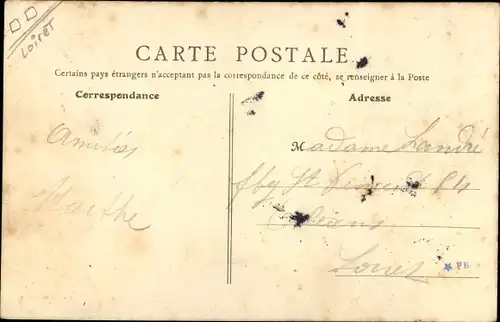 Loiret
CARTE POSTALE
Certains pays étrangers n'acceptant pas la correspondance de ce côté, se renseigner à la Poste
Correspondance
Adresse
Amitiés
Marthe
Madame Landré
fbg St Vincent 84
Orléans
Loiret
PB